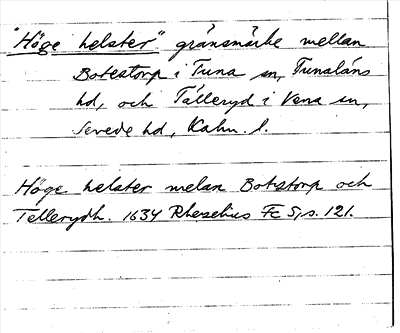 "Höge helster" gränsmärke mellan
Botestorp i Tuna sn, Tunaläns
hd, och Tälleryd i Vena sn,
Sevede hd, Kalm. l.
Höge helster melan Botstorp och
Tellerydh. 1634 Rhezelius Fc 5, s. 121.